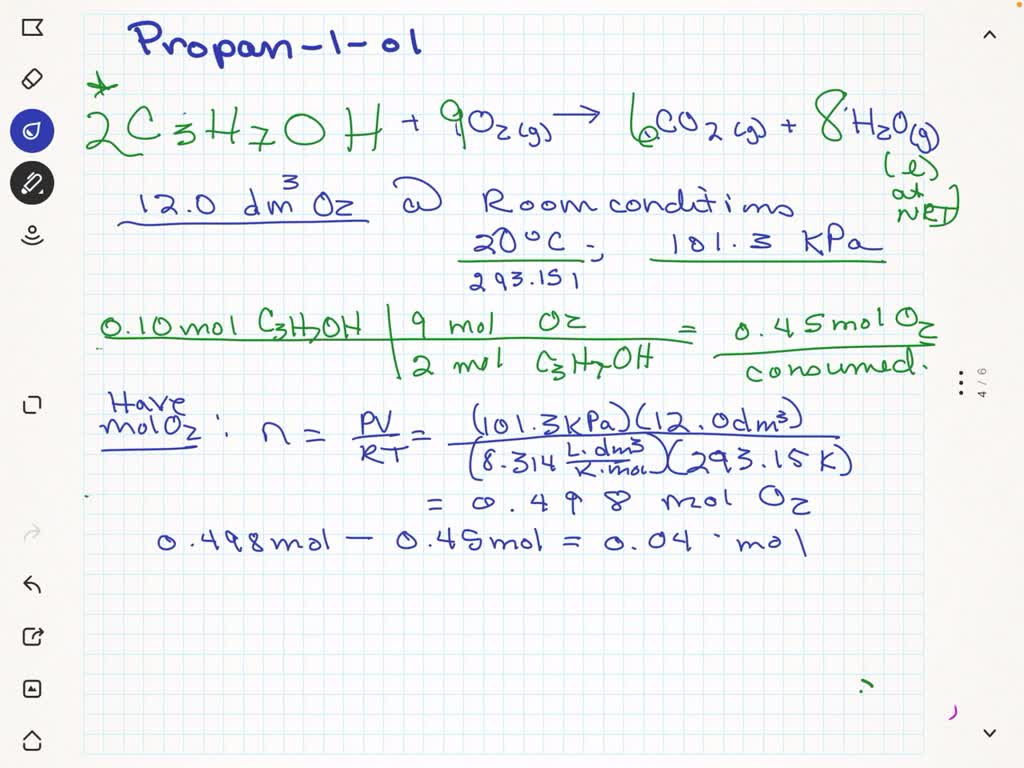 Propan-1-ol
2C3H7OH + 9O2(g) → 6CO2(g) + 8H2O(g)
(l)
at
NRT
12.0 dm³ O2 @ Room conditions
20°C ; 101.3 KPa
293.151
0.10 mol C3H7OH | 9 mol O2 = 0.45 mol O2
2 mol C3H7OH consumed.
Have
mol O2 : n = PV/RT = (101.3 kPa)(12.0 dm³)
(8.314 L.dm³/K.mol)(293.15 K)
= 0.498 mol O2
0.498 mol - 0.45 mol = 0.04 · mol
4 / 6